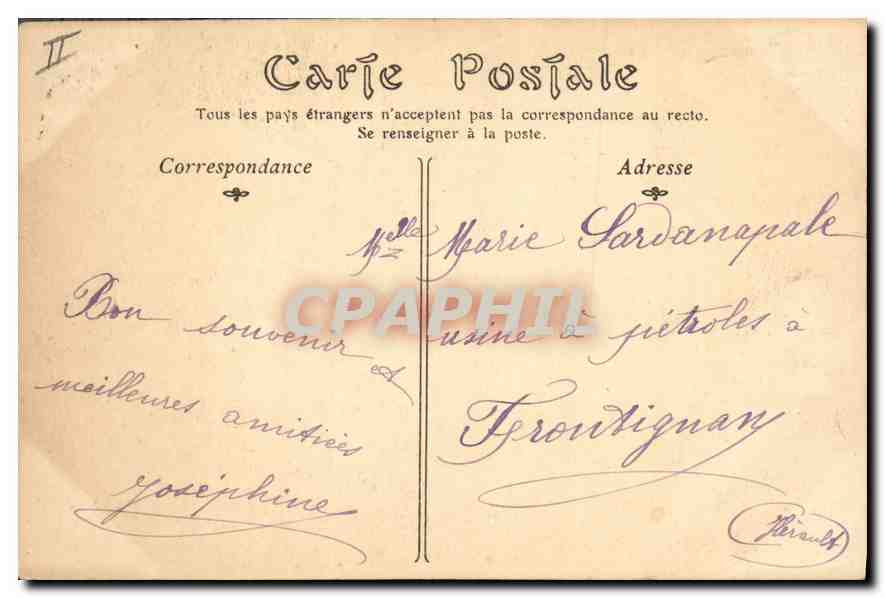 II
Carte Postale
Tous les pays étrangers n'acceptent pas la correspondance au recto.
Se renseigner à la poste.
Correspondance
Adresse
Bon souvenir et
meilleures amitiées
Joséphine
Melle Marie Sardanapale
usine à pétroles à
Frontignan
Hérault
CPAPHIL